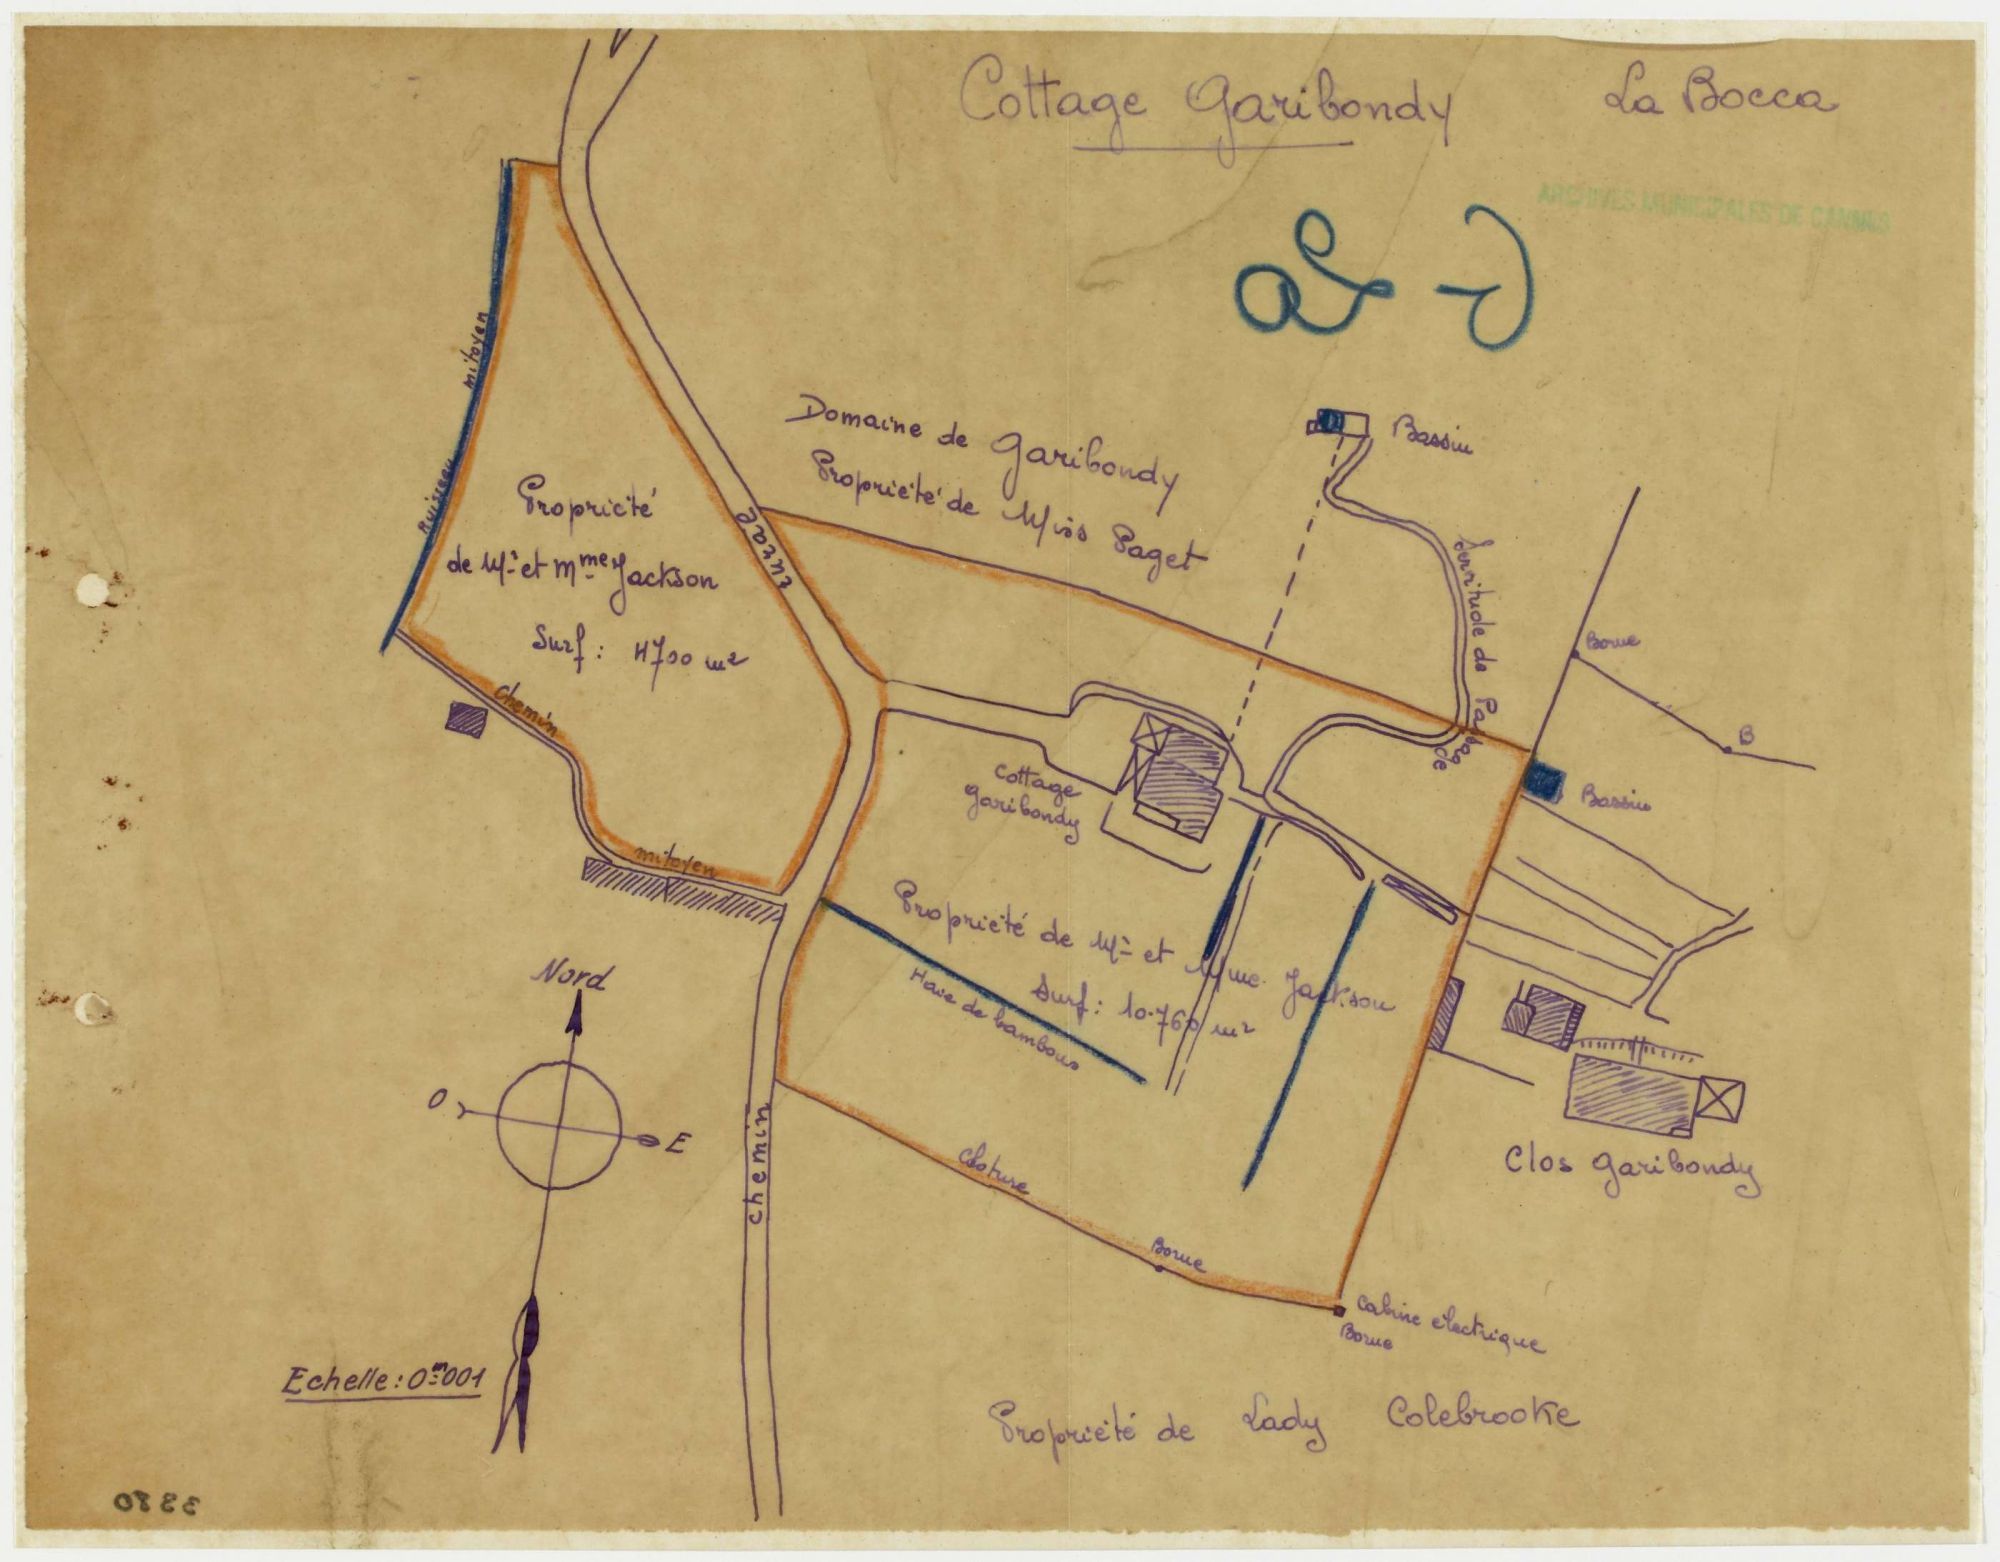 Cottage Garibondy
La Bocca
ARCHIVES MUNICIPALES DE CANNES
Domaine de Garibondy
Propriété de Miss Paget
Bassin
Servitude de Passage
Borne
B
Bassin
Ruisseau mitoyen
Propriété
de Mr et Mme Jackson
Surf: 4700 m2
Chemin
mitoyen
Cottage
Garibondy
Propriété de Mr et Mme Jackson
Surf: 10.760 m2
Haie de bambous
Nord
O
E
chemin
Cloture
Borne
Cabine électrique
Borne
Clos Garibondy
Echelle: 0m001
Propriété de Lady Colebrooke
3380